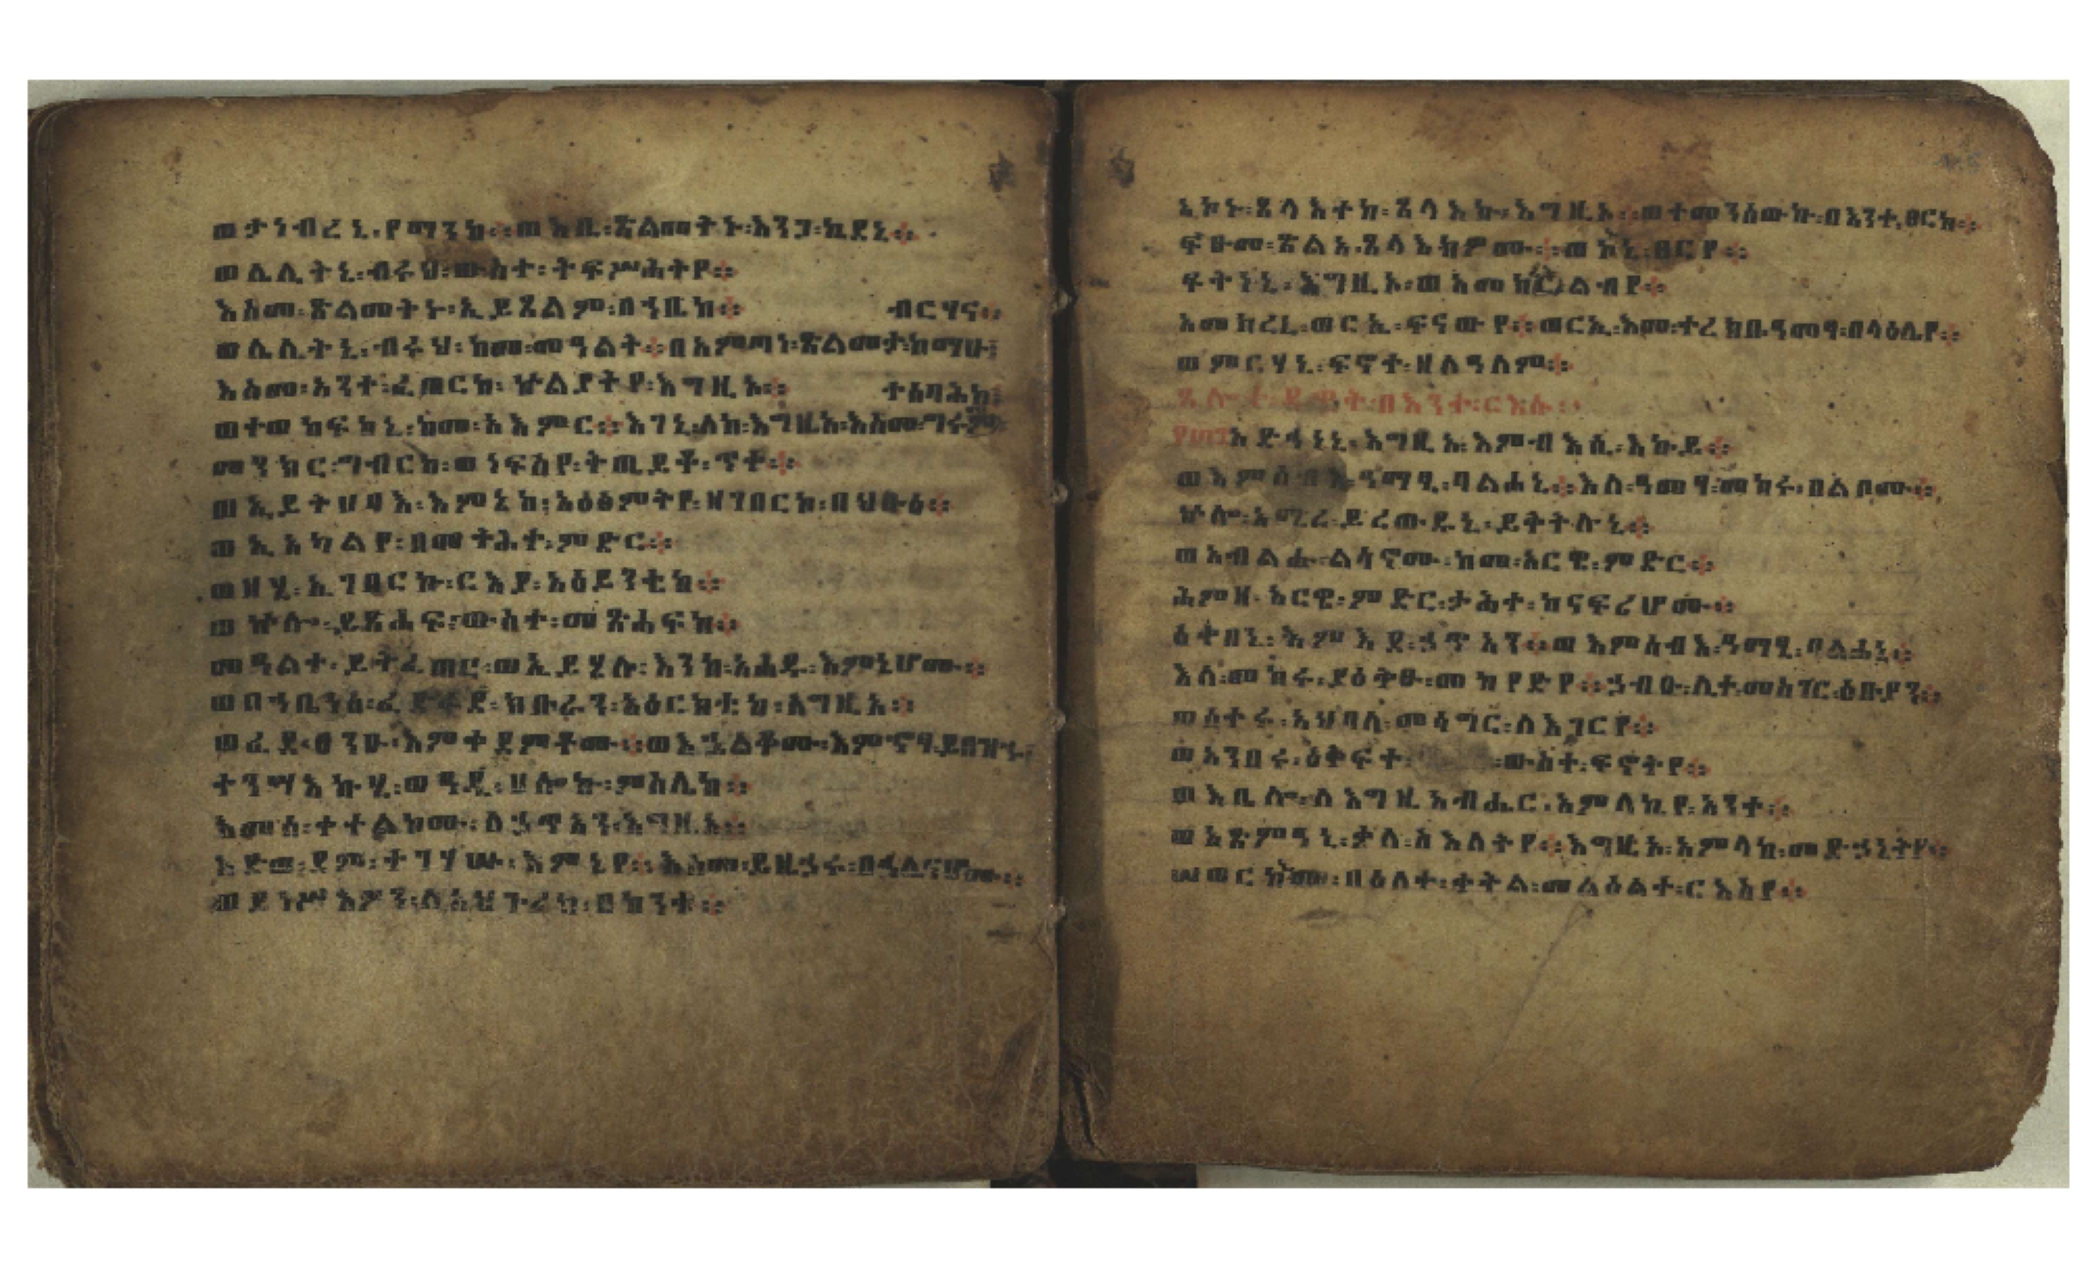 ወታነብረኒ፡የማንከ፨ወእቤ፡ጽልመትኑ፡እንጋ፡ኬደኒ፨
ወሌሊትኒ፡ብሩህ፡ውስተ፡ትፍሥሕትየ፨
እስመ፡ጽልመትኑ፡ኢይጸልም፡በኀቤከ፨ ብርሃና፡
ወሌሊትኒ፡ብሩህ፡ከመ፡መዓልት፨በአምጣነ፡ጽልመታ፡ከማሁ፡
እስመ፡አንተ፡ፈጠርከ፡ኵልያትየ፡እግዚኦ፨ ተስባሕከ፡
ወተወከፍከኒ፡ከመ፡አእምር፨እገኒ፡ለከ፡እግዚኦ፡እስመ፡ግሩም፡
መንክር፡ግብርከ፡ወነፍስየ፡ትጤይቆ፡ጥቀ፨
ወኢይትሀባእ፡እምኔከ፡አዕፅምትየ፡ዘገበርከ፡በህቡዕ፨
ወኢአካልየ፡በመትሕተ፡ምድር፨
ወዘሂ፡ኢገበርኩ፡ርእያ፡አዕይንቲከ፨
ወኵሎ፡ይጸሐፍ፡ውስተ፡መጽሐፍከ፨
መዓልተ፡ይትፈጠር፡ወኢይሄሉ፡እንከ፡አሐዱ፡እምኔሆሙ፨
ወበኀቤንሰ፡ፈድፋደ፡ክቡራን፡አዕርክቲከ፡እግዚኦ፨
ወፈድፋደ፡ጸንዑ፡እምቀደምቶሙ፨ወእኌልቆሙ፡እምኖፃ፡ይበዝኁ፡
ተንሣእኩሂ፡ወዓዲ፡ሀሎኩ፡ምስሌከ፨
እመሰ፡ቀተልከሙ፡ለኃጥአን፡እግዚኦ፨
ዕድወ፡ደም፡ተገሃሡ፡እምኔየ፨እስመ፡ይዜኃሩ፡በኅሊናሆሙ፨
ወይነሥእዎን፡ለአህጉሪከ፡በከንቱ፨
አኮኑ፡ጸላእተከ፡ጸላእኩ፡እግዚኦ፨ወተመንሰውኩ፡በእንተ፡ፀርከ፨
ፍፁመ፡ጽልአ፡ጸላእክዎሙ፨ወኮኑ፡ፀርየ፨
ፍትነኒ፡እግዚኦ፡ወአመክር፡ልብየ፨
አመክረኒ፡ወርኢ፡ፍናውየ፨ወርኢ፡እመ፡ተረክበ፡ዓመፃ፡በላዕሌየ፨
ወምርሃኒ፡ፍኖተ፡ዘለዓለም፨
ጸሎተ፡ዳዊት፡በእንተ፡ርእሱ፨
አድኅነኒ፡እግዚኦ፡እምብእሲ፡እኩይ፨
ወእምሰብእ፡ዓማፂ፡ባልሐኒ፨እለ፡ዓመፃ፡መከሩ፡በልቦሙ፨
ኵሎ፡አሚረ፡ይረውዱኒ፡ይቅትሉኒ፨
ወአብልሑ፡ልሳኖሙ፡ከመ፡አርዌ፡ምድር፨
ሕምዘ፡አርዌ፡ምድር፡ታሕተ፡ከናፍሪሆሙ፨
ዕቀበኒ፡እምእደ፡ኃጥአን፨ወእምሰብእ፡ዓማፂ፡ባልሐኒ፨
እለ፡መከሩ፡ያዕቅፁ፡መከየድየ፨ኃብዑ፡ሊተ፡መስገር፡ዕቡያን፨
ወሰተሩ፡አህባለ፡መሳግር፡ለእገርየ፨
ወአንበሩ፡ዕቅፍተ፡ ፡ውስተ፡ፍኖትየ፨
ወእቤሎ፡ለእግዚአብሔር፡አምላኪየ፡አንተ፨
ወአጽምዓኒ፡ቃለ፡ስእለትየ፨እግዚኦ፡አምላከ፡መድኃኒትየ፨
ሠወርከሙ፡በዕለተ፡ቀትል፡መልዕልተ፡ርእስየ፨